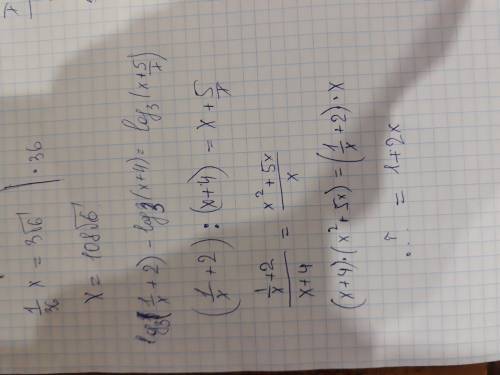 1/36 x = 3√6 | · 36
x = 108√6
log₃(1/x + 2) - log₃(x+4) = log₃(x+5/x)
(1/x + 2) : (x+4) = x + 5/x
(1/x + 2)/(x+4) = (x² + 5x)/x
(x+4) · (x² + 5x) = (1/x + 2) · x
= 1 + 2x